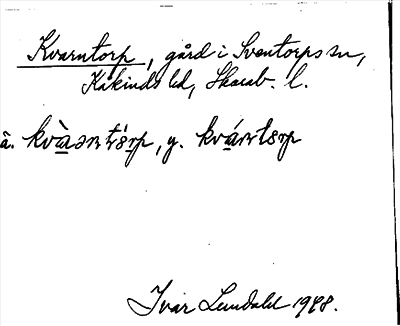 Kvarntorp, gård i Sventorps sn,
Kåkinds hd, Skarab. l.
ä. kvàantórp, y. kvántorp
Ivar Lundahl 1948.